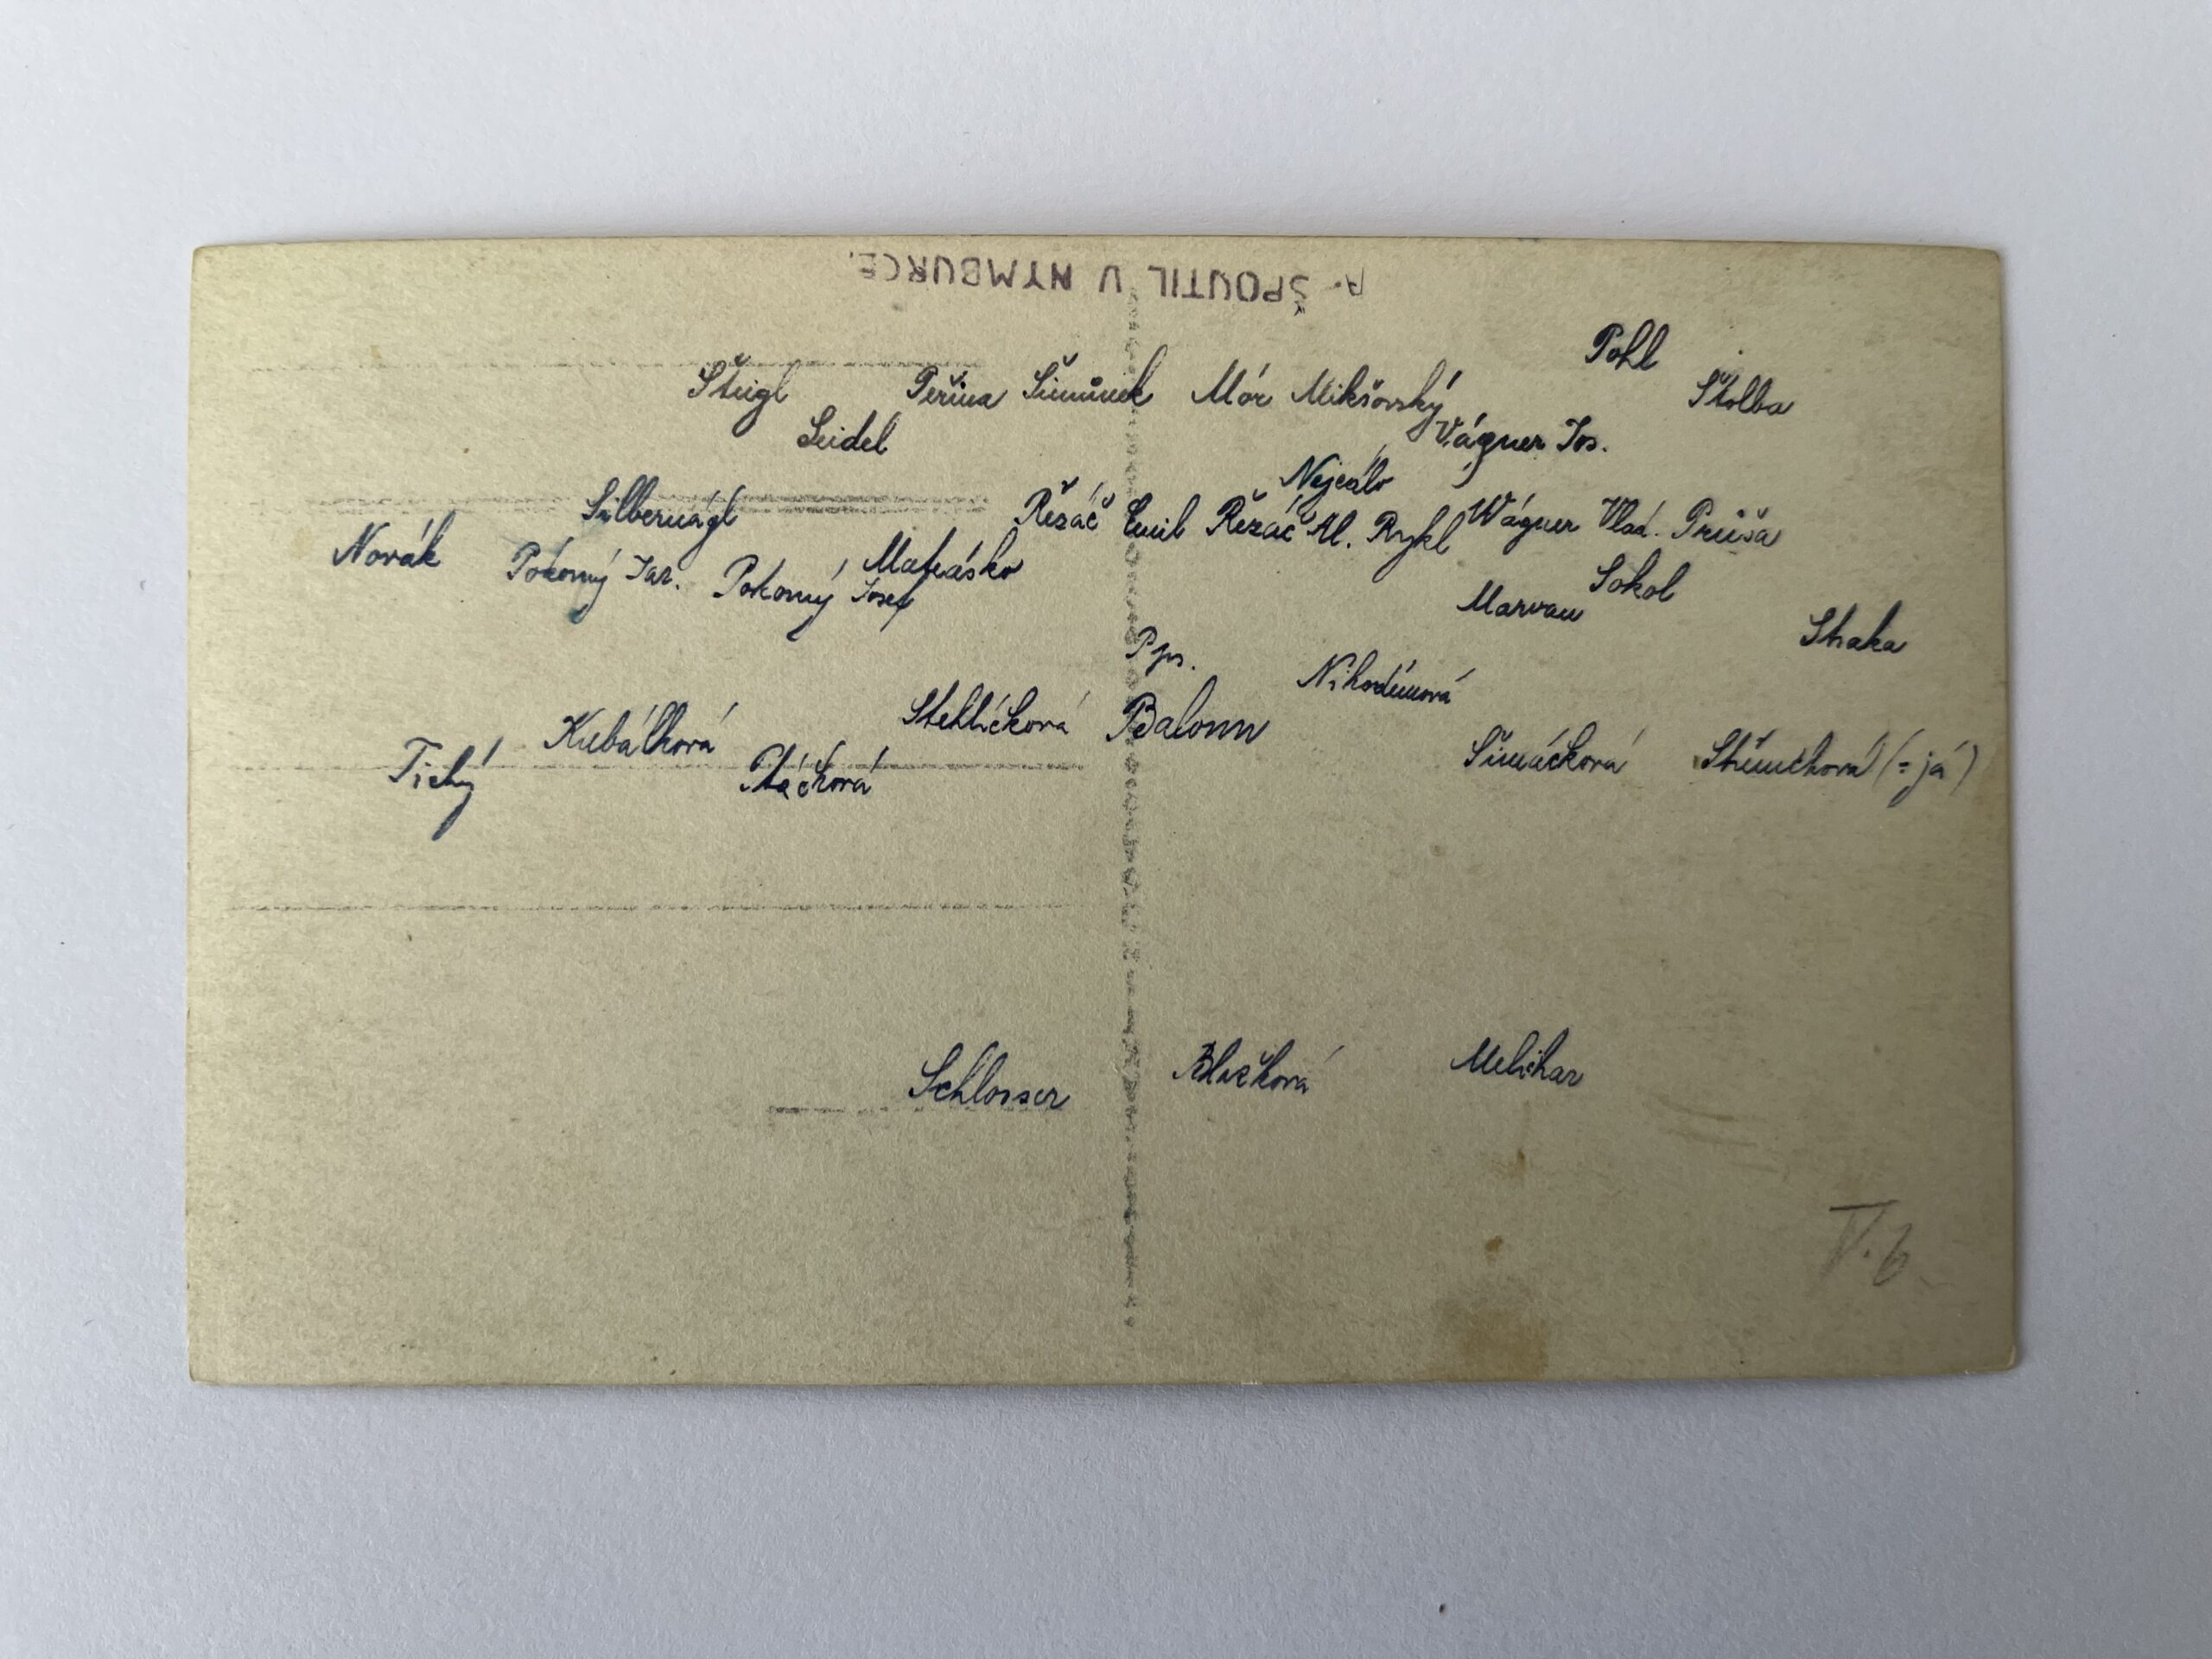 A. ŠPOUTIL V NYMBURCE.
Pohl
Šteigl Peřina Šimůnek Mór Mikšovský Štolba
Seidel Vágner Jos.
Nejedlo
Silbernágl Řezáč Emil Řezáč Al. Rykl Wágner Vlad. Průša
Novák Pokorný Jar. Pokorný Josef Matěásko
Marvan Sokol
Straka
Pps.
Nikodémová
Kubálková Stehlíčková Balonn
Tichý Ptáčková Šimáčková Střemchová (= já)
Schlosser Blažková Melichar
V. 6